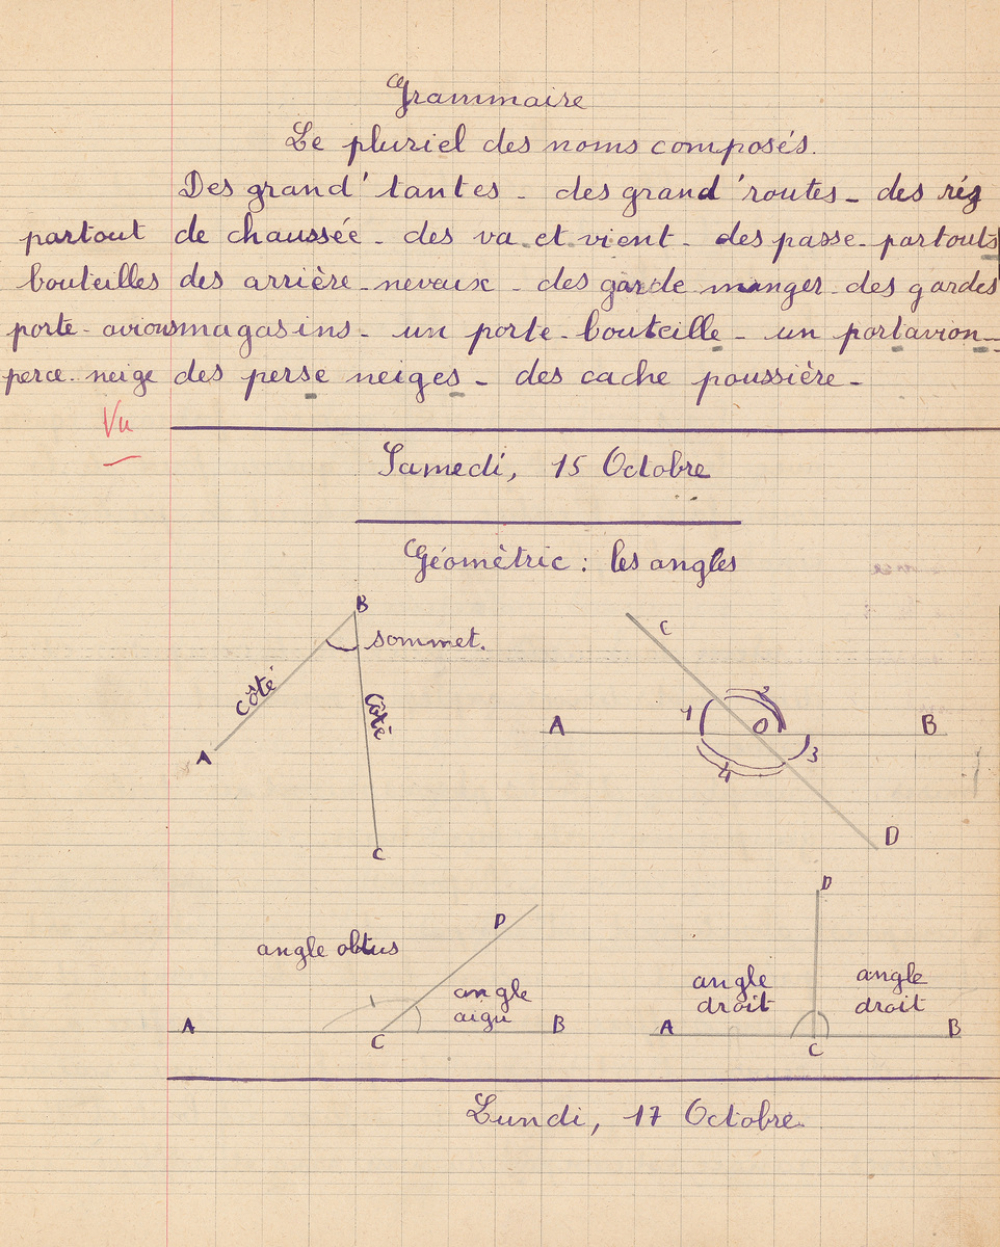 Grammaire
Le pluriel des noms composés.
Des grand'tantes - des grand'routes - des réz
partout de chaussée - des va et vient - des passe-partouts
bouteilles des arrière-neveux - des garde manger - des gardes
porte-avions magasins - un porte-bouteille - un portavion -
perce-neige des perse neiges - des cache poussière -
Vu
Samedi, 15 Octobre
Géomètric : les angles
B
sommet.
côté
côté
A
C
C
2
1
A
O
B
3
4
D
D
angle obtus
angle
aigu
A
B
C
D
angle
droit
angle
droit
A
B
C
Lundi, 17 Octobre.